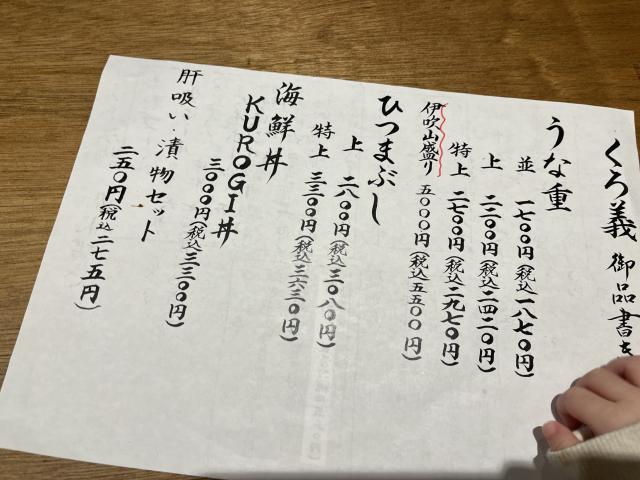 くろ義 御品書き
うな重
並 一七〇〇円(税込一八七〇円)
上 二二〇〇円(税込二四二〇円)
特上 二七〇〇円(税込二九七〇円)
伊吹山盛り 五〇〇〇円(税込五五〇〇円)
ひつまぶし
上 二八〇〇円(税込三〇八〇円)
特上 三三〇〇円(税込三六三〇円)
海鮮丼
KUROGI丼
三〇〇〇円(税込三三〇〇円)
肝吸い・漬物セット
二五〇円(税込二七五円)